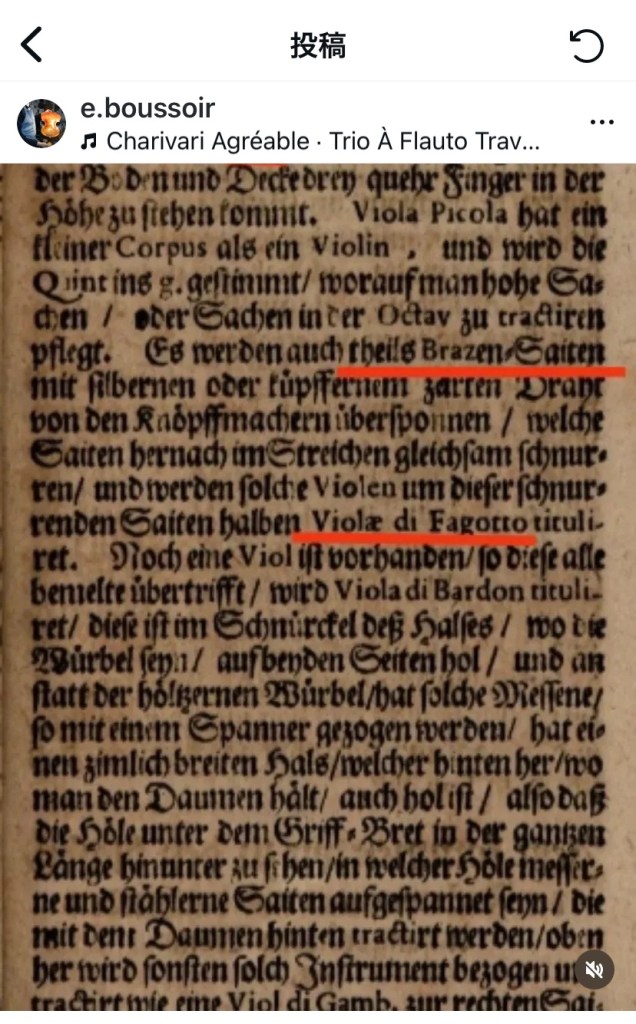 投稿
e.boussoir
Charivari Agréable · Trio À Flauto Trav...
der Boden und Decke drey quehr Finger in der
Höhe zu stehen kommt. Viola Picola hat ein
kleiner Corpus als ein Violin, und wird die
Quint ins g. gestimmt/ worauf man hohe Sa⸗
chen / oder Sachen in der Octav zu tractiren
pflegt. Es werden auch theils Brazen⸗Saiten
mit silbernen oder küpffernem zarten Drant
von den Knöpffmachern übersponnen / welche
Saiten hernach im Streichen gleichsam schnur⸗
ren/ und werden solche Violen um dieser schnur⸗
renden Saiten halben Violæ di Fagotto tituli-
ret. Noch eine Viol ist vorhanden/ so diese alle
bemelte übertrifft / wird Viola di Bardon tituli-
ret/ diese ist im Schnürckel deß Halses / wo die
Würbel seyn/ auf beyden Seiten hol / und an
statt der höltzernen Würbel/ hat solche Messene/
so mit einem Spanner gezogen werden/ hat ei⸗
nen zimlich breiten Hals/ welcher hinten her/ wo
man den Daumen hält/ auch hol ist / also daß
die Höle unter dem Griff⸗Bret in der gantzen
Länge hinunter zu sehen/ in welcher Höle messer⸗
ne und stählerne Saiten aufgespannet seyn / die
mit dem Daumen hinten tractirt werden/ oben
her wird sonsten solch Instrument bezogen
tractirt wie eine Viol di Gamb. zur rechten Sai⸗